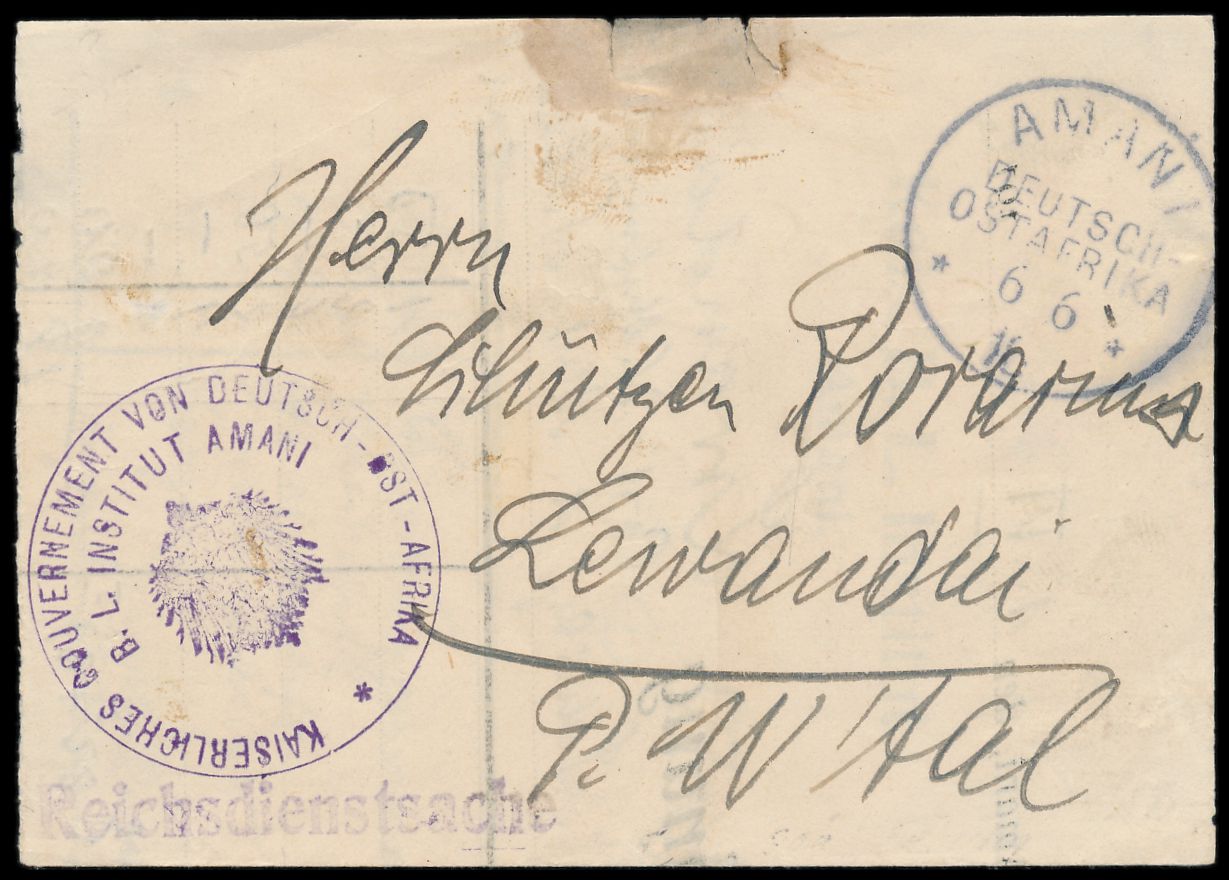 AMANI
DEUTSCH-
OSTAFRIKA
* 6 6 *
Herrn
Schützen
Lewandai
P. W'tal
KAISERLICHES GOUVERNEMENT VON DEUTSCH-OST-AFRIKA *
B. L. INSTITUT AMANI
Reichsdienstsache